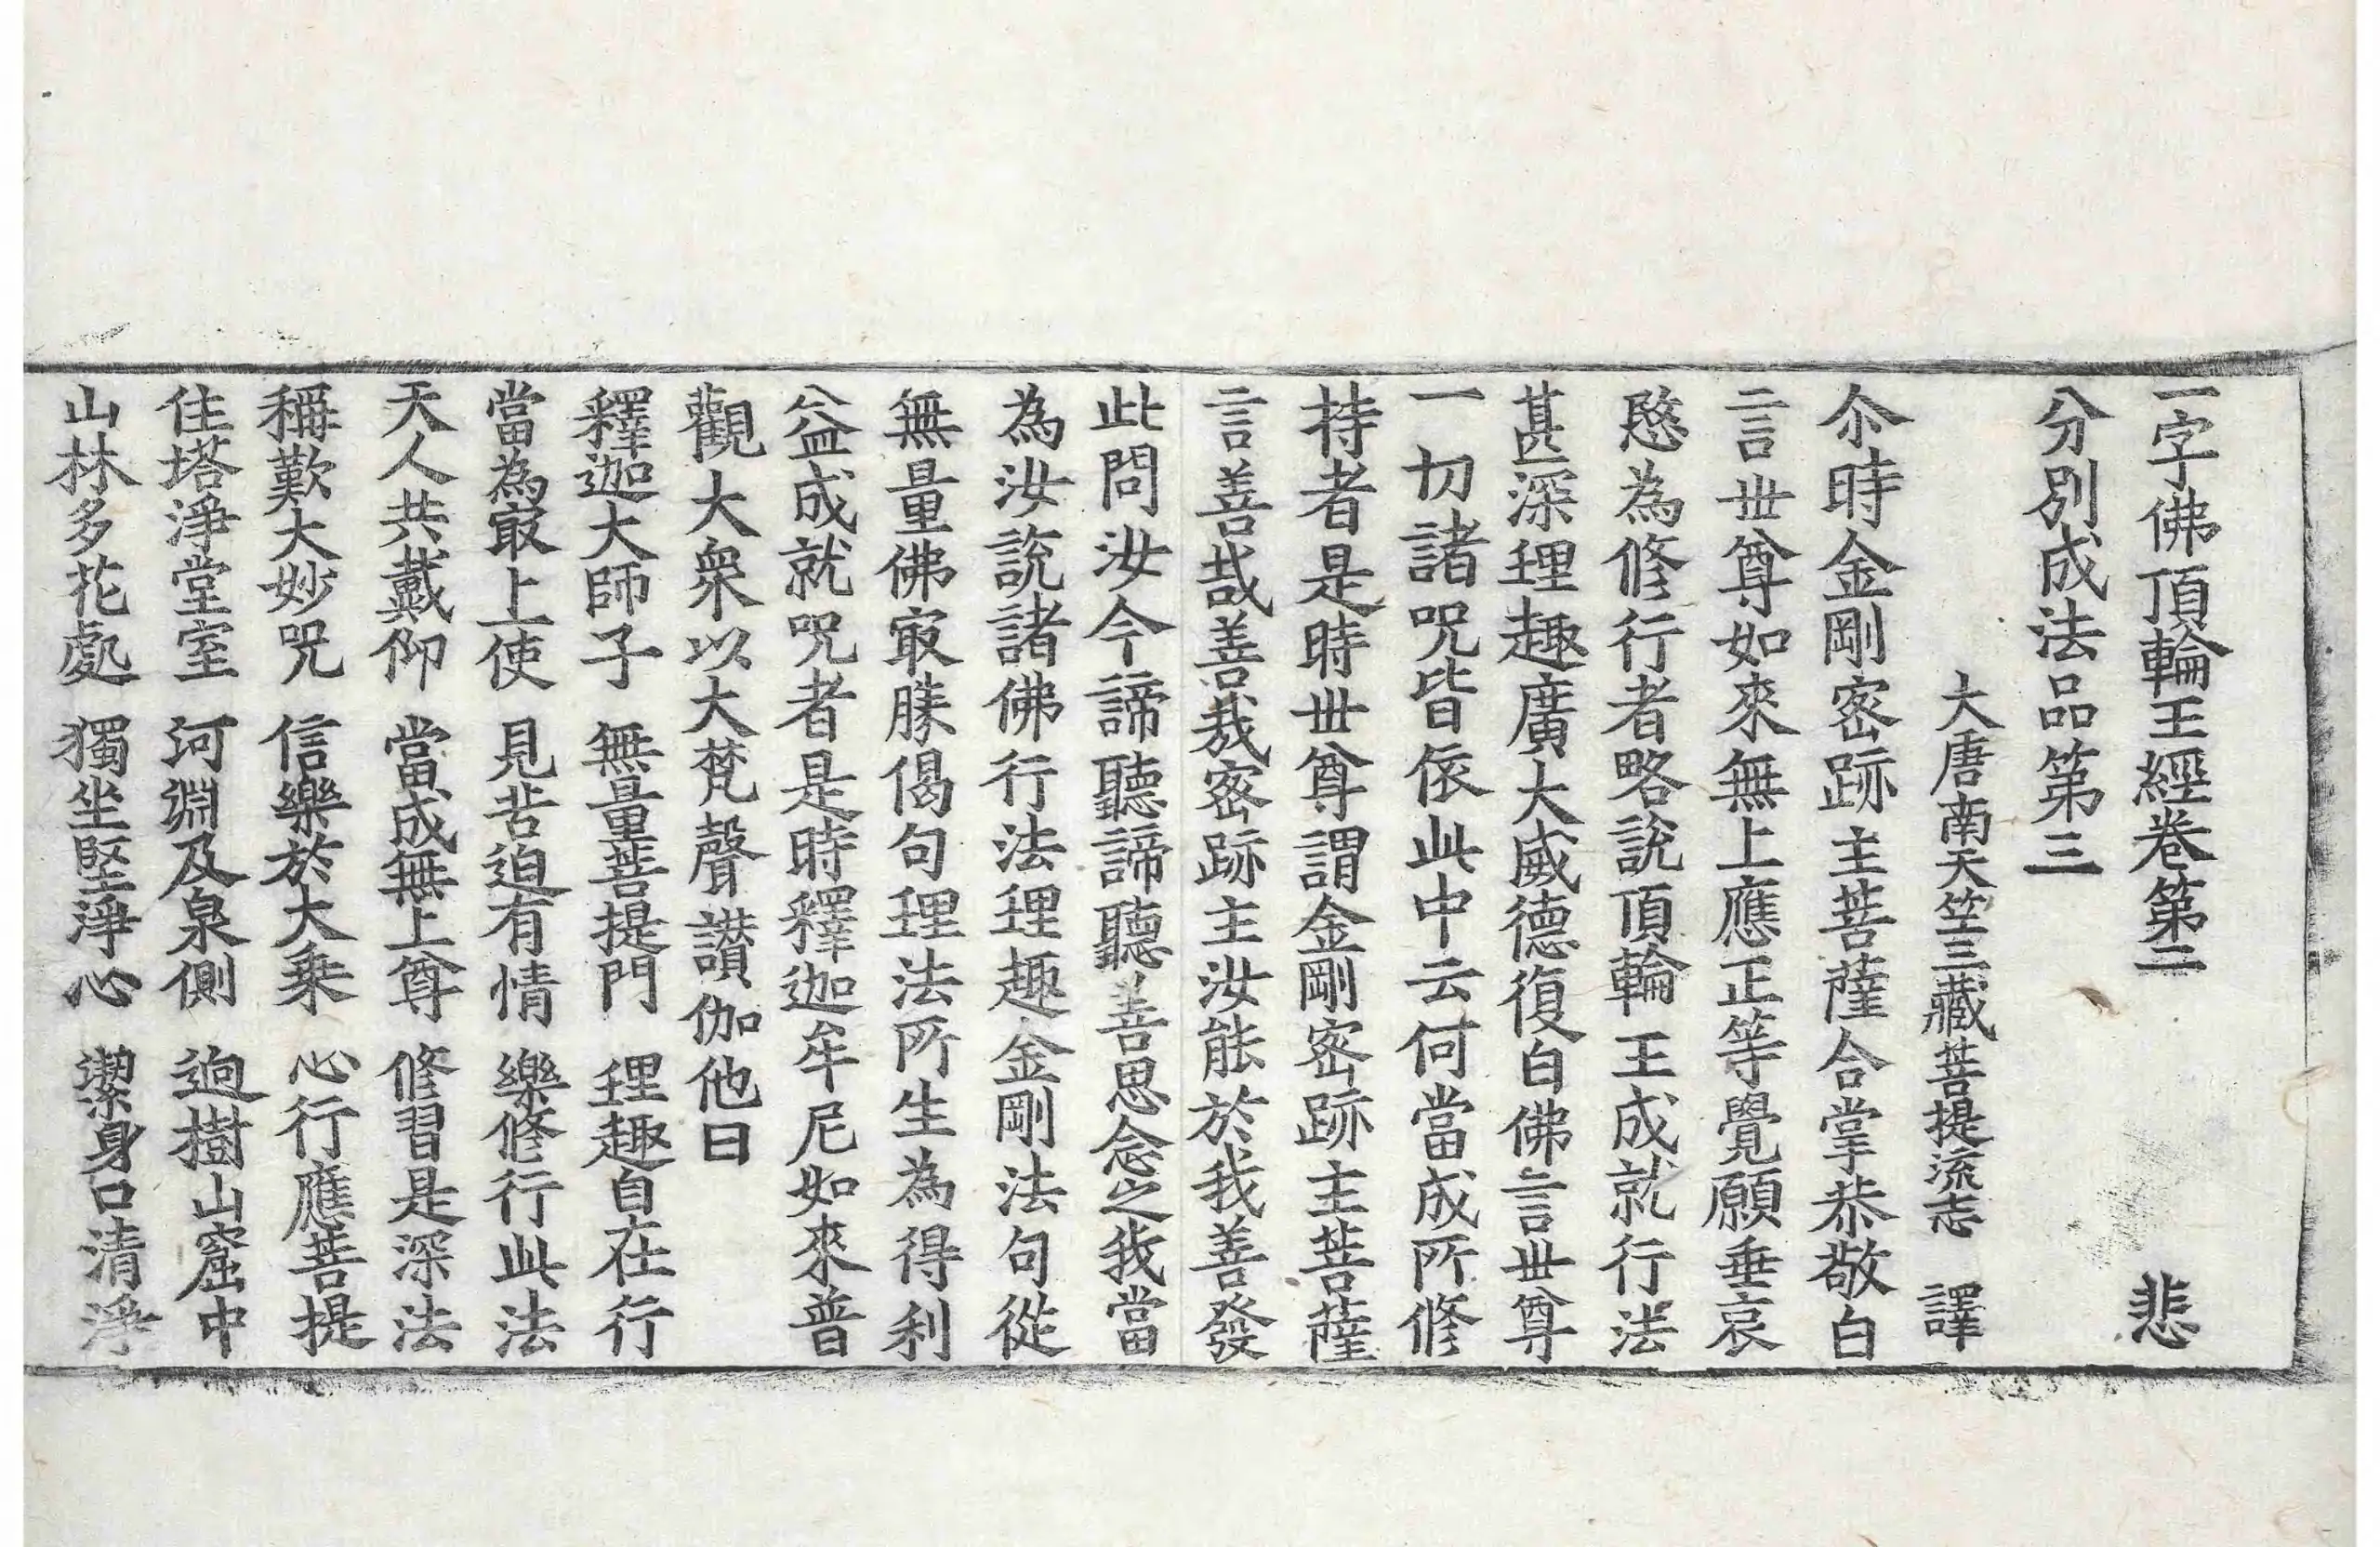 一字佛頂輪王經卷第二 悲
分别成法品第三
大唐南天竺三藏菩提流志 譯
尒時金剛密跡主菩薩合掌恭敬白
言世尊如來無上應正等覺願垂哀
愍為修行者略說頂輪王成就行法
甚深理趣廣大威德復白佛言世尊
一切諸咒皆依此中云何當成所修
持者是時世尊謂金剛密跡主菩薩
言善哉善哉密跡主汝能於我善發
此問汝今諦聽諦聽善思念之我當
為汝說諸佛行法理趣金剛法句從
無量佛㝡勝偈句理法所生為得利
益成就咒者是時釋迦牟尼如來普
觀大衆以大梵聲讃伽他曰
釋迦大師子 無量菩提門 理趣自在行
當為㝡上使 見苦迫有情 樂修行此法
天人共戴仰 當成無上尊 修習是深法
稱歎大妙咒 信樂於大乗 心行應菩提
住塔淨堂室 河淵及泉側 迥樹山窟中
山林多花處 獨坐堅淨心 潔身口清淨